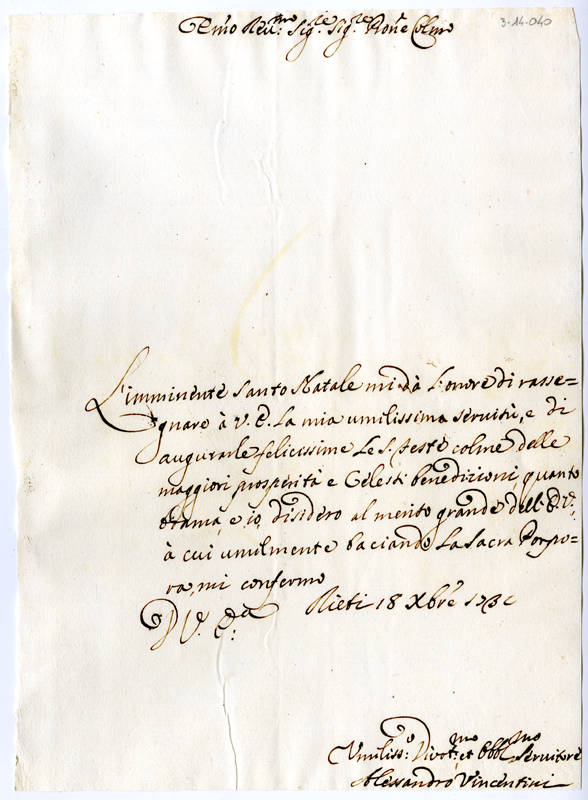 3-14-040
Emo Revmo: Sigre Sigre Prone Colmo
L'imminente Santo Natale mi dà l'onore di rasse=
gnare à V. E. la mia umilissima servitù, e di
augurarle felicissime le S. feste colme delle
maggiori prosperità e Celesti benedizioni, quanto
brama, e io disidero al merito grande dell'E. V.,
à cui umilmente baciando la Sacra Porpo=
ra, mi confermo
D V. Ea: Rieti 18 Xbre
Umiliss:o Divot:mo et Obblmo Servitore
Alessandro Vincentini